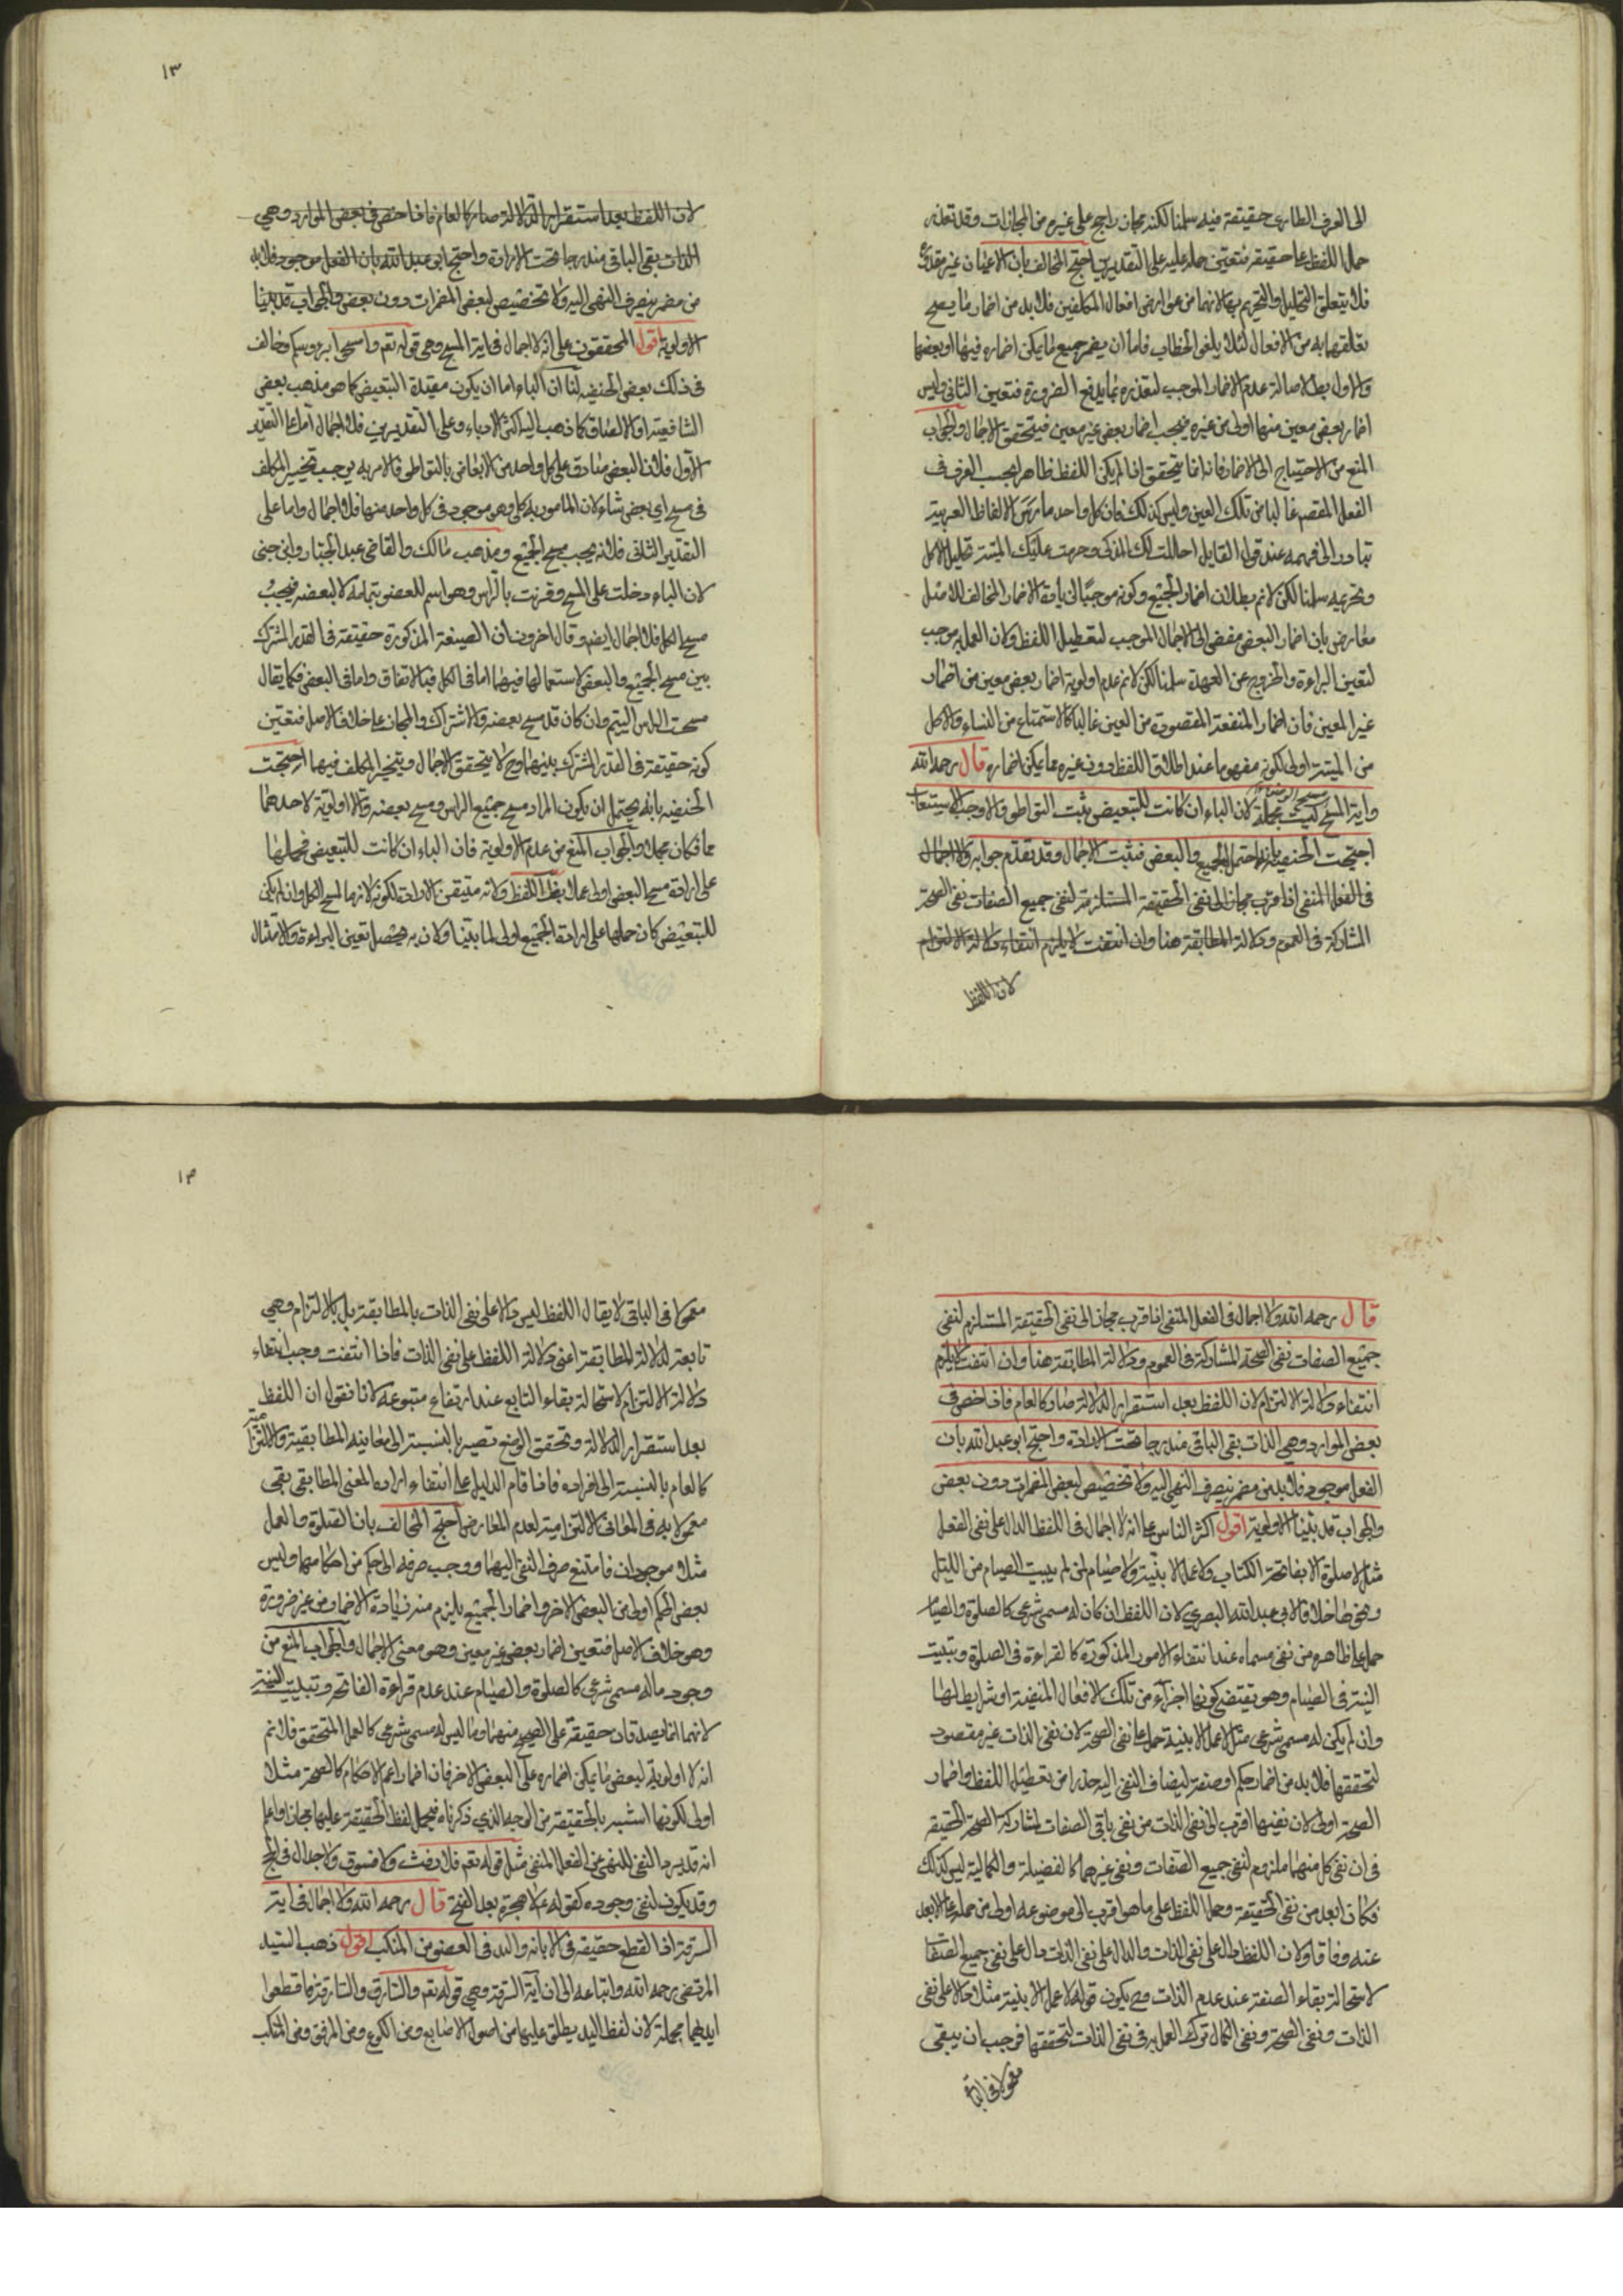 الى العرف الطارى حقيقة فيه سلمنا لكنه مجاز راجح على غيره من المجازات وقد تعذر
حمل اللفظ على حقيقته فتعين حمله عليه على التقديرين احتج المخالف بان الاعيان غير مقدورة
فلا يتعلق التحليل والتحريم بها لانهما من عوارض افعال المكلفين فلا بد من اضمار ما يصح
تعلقهما به من الافعال لئلا يلغى الخطاب فاما ان يضمر جميع ما يمكن اضماره فيها او بعضها
والاول بط لاصالة عدم الاضمار الموجب لتقديره بما يدفع الضرورة فتعين الثانى وليس
اضمار بعض معين منها اولى من غيره فيجب اضمار بعض غير معين فيتحقق الاجمال والجواب
المنع من الاحتياج الى الاضمار فانه انما يتحقق اذا لم يكن اللفظ ظاهرا بحسب العرف فى
الفعل المقصود غالبا من تلك العين وليس كذلك فان كل واحد مارس الالفاظ العربية
تبادر الى فهمه عند قول القايل احللت لك المذكى وحرمت عليك الميتة تحليل الاكل
وتحريمه سلمنا لكن لا نم بطلان اضمار الجميع وكونه موجبا لزيادة الاضمار المخالف للاصل
معارض بان اضمار البعض مفض الى الاجمال الموجب لتعطيل اللفظ ولان العمل به موجب
لتعين البراءة والخروج عن العهدة سلمنا لكن لا نم عدم اولوية اضمار بعض معين من اضمار
غير المعين فان اضمار المنفعة المقصودة من العين غالبا كالاستمتاع من النساء والاكل
من الميتة اولى لكونه مفهوما عند اطلاق اللفظ دون غيره مما يمكن اضماره قال رحمه الله
واية المسح ليست مجملة لان الباء ان كانت للتبعيض ثبت التواطى والا وجب الاستيعاب
احتجت الحنفية بانه احتمل الجميع والبعض فثبت الاجمال وقد تقدم جوابه ولا اجمال
فى الفعل المنفى اذا قرب مجاز الى نفى الحقيقة المستلزمة لنفى جميع الصفات نفى الصحة
المشاركة فى العموم ودلالة المطابقة هنا وان انتفت لا يلزم انتفاء دلالة الالتزام
لان اللفظ
١٣
لان اللفظ بعد استقرار الدلالة صار كالعام فاذا خص فى بعض الموارد وهى
الذات بقى الباقى مندرجا تحت الارادة واحتج ابو عبد الله بان الفعل موجود فلا بد
من مضمر ينصرف النهى اليه ولا تخصيص لبعض المضمرات دون بعض والجواب قد بينا
الاولوية اقول المحققون على انه لا اجمال فى اية المسح وهى قوله تع وامسحوا برءوسكم وخالف
فى ذلك بعض الحنفيه لنا ان الباء اما ان يكون مفيدة التبعيض كما هو مذهب بعض
الشافعية او الالصاق كما ذهب اليه اكثر الادباء وعلى التقديرين فلا اجمال اما على التقدير
الاول فلان البعض صادق على كل واحد من الابعاض بالتواطى فالامر به يوجب تخيير المكلف
فى مسح اى بعض شاء لان المامور به كلى وهو موجود فى كل واحد منها فلا اجمال واما على
التقدير الثانى فلانه يجب مسح الجميع ومذهب مالك والقاضى عبد الجبار وابن جنى
لان الباء دخلت على المسح وقرنت بالراس وهو اسم للعضو بتمامه لا لبعضه فيجب
مسح الكل فلا اجمال ايضم وقال اخرون ان الصيغة المذكورة حقيقة فى القدر المشترك
بين مسح الجميع والبعض لاستعمالها فيهما اما فى الكل فبالاتفاق واما فى البعض فكما يقال
مسحت براس اليتيم وان كان قد مسح بعضه والاشتراك والمجاز على خلاف الاصل فتعين
كونه حقيقة فى القدر المشترك بينهما وح لا يتحقق الاجمال ويتخير المكلف فيهما احتجت
الحنفيه بانه يحتمل ان يكون المراد مسح جميع الراس ومسح بعضه ولا اولوية لاحدهما
مما فكان مجملا والجواب المنع من عدم الاولوية فان الباء ان كانت للتبعيض فحملها
على ارادة مسح البعض اولى عملا بهذا اللفظ ولانه متيقن الارادة لكونه لازما لمسح الكل وان لم يكن
للتبعيض كان حملها على ارادة الجميع اولى لما بينا ولان به يحصل تعين البراءة والامتثال
قال رحمه الله ولا اجمال فى الفعل المنفى اذا قرب مجاز الى نفى الحقيقة المستلزم لنفى
جميع الصفات نفى الصحة المشاركة فى العموم ودلالة المطابقة هنا وان انتفت لا يلزم
انتفاء دلالة الالتزام لان اللفظ بعد استقرار الدلالة صار كالعام فاذا خص فى
بعض الموارد وهى الذات بقى الباقى مندرجا تحت الارادة واحتج ابو عبد الله بان
الفعل موجود فلا بد من مضمر ينصرف النهى اليه ولا تخصيص لبعض المضمرات دون بعض
والجواب قد بينا الاولوية اقول اكثر الناس على انه لا اجمال فى اللفظ الدال على نفى الفعل
مثل لا صلوة الا بفاتحة الكتاب ولا عمل الا بنية ولا صيام لمن لم يبيت الصيام من الليل
ونحوها خلافا لابى عبد الله البصرى لان اللفظ ان كان له مسمى شرعى كالصلوة والصيام
حمل على ظاهره من نفى مسماه عند انتفاء الامور المذكورة كالقراءة فى الصلوة وتبييت
النية فى الصيام وهو يقتضى كونها اجزاء من تلك الافعال المنفية او شرايط لها
وان لم يكن له مسمى شرعى مثل لا عمل الا بنية حمل على نفى الصحة لان نفى الذات غير مقصود
لتحققها فلا بد من اضمار حكم او صفة ليضاف النفى اليه حذرا من تعطيل اللفظ واضمار
الصحة اولى لان نفيها اقرب الى نفى الذات من نفى باقى الصفات لمشاركة الصحة الحقيقة
فى ان نفى كل منهما ملزوم لنفى جميع الصفات ونفى غيرهما كالفضيلة والكمالية ليس كذلك
فكان ابعد من نفى الحقيقة وحمل اللفظ على ما هو اقرب الى موضوعه اولى من حمله على الابعد
عنه وفاقا ولان اللفظ دال على نفى الذات والدال على نفى الذات دال على نفى جميع الصفات
لاستحالة بقاء الصفة عند عدم الذات وح يكون قوله لا عمل الا بنية مثلا دالا على نفى
الذات ونفى الصحة ونفى الكمال ترك العمل به فى نفى الذات لتحققها فوجب ان يبقى
معمولا فى الباقى
١٣
معمولا فى الباقى لا يقال اللفظ ليس دالا على نفى الذات بالمطابقة بل بالالتزام وهى
تابعة لدلالة المطابقة اعنى دلالة اللفظ على نفى الذات فاذا انتفت وجب انتفاء
دلالة الالتزام لاستحالة بقاء التابع عند ارتفاع متبوعه لانا نقول ان اللفظ
بعد استقرار الدلالة وتحقق الوضع تصير بالنسبة الى معانيه المطابقية والالتزامية
كالعام بالنسبة الى افراده فاذا قام الدليل على انتفاء ارادة المعنى المطابقى بقى
معمولا به فى المعانى الالتزامية لعدم المعارض احتج المخالف بان الصلوة والعمل
مثلا موجودان فامتنع صرف النفى اليهما ووجب صرفه الى حكم من احكامهما وليس
بعض الحكم اولى من البعض الاخر واضمار الجميع يلزم منه زيادة الاضمار من غير ضرورة
وهو خلاف الاصل فتعين اضمار بعض غير معين وهو معنى الاجمال والجواب المنع من
وجود ماله مسمى شرعى كالصلوة والصيام عند عدم قراءة الفاتحة وتبييت النية
لانهما انما يصدقان حقيقة على الصحيح منهما وما ليس له مسمى شرعى كالعمل المتحقق فلا نم
انه لا اولوية لبعض ما يمكن اضماره على البعض الاخر فان اضمار اعم الاحكام كالصحة مثلا
اولى لكونها اشبه بالحقيقة من الوجه الذى ذكرناه فيحمل لفظ الحقيقة عليها مجازا واعلم
انه قد يرد النفى للنهى عن الفعل المنفى مثل قوله تع فلا رفث ولا فسوق ولا جدال فى الحج
وقد يكون لنفى وجوده كقوله ع لا هجرة بعد الفتح قال رحمه الله ولا اجمال فى اية
السرقة اذ القطع حقيقة فى الابانة واليد فى العضو من المنكب اقول ذهب السيد
المرتضى رحمه الله واتباعه الى ان آية السرقة وهى قوله تع والسارق والسارقة فاقطعوا
ايديهما مجملة لان لفظ اليد يطلق عليها من اصول الاصابع ومن الكوع ومن المرفق ومن المنكب